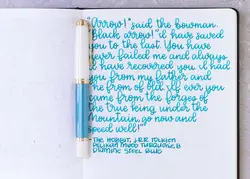 "Arrow!" said the bowman.
"Black arrow! I have saved
you to the last. You have
never failed me and always
I have recovered you. I had
you from my father and
he from of old. If ever you
came from the forges of
the true king under the
Mountain, go now and
speed well!"
THE HOBBIT, J.R.R. TOLKIEN
PELIKAN M600 TURQUOISE, B
DIAMINE STEEL BLUE